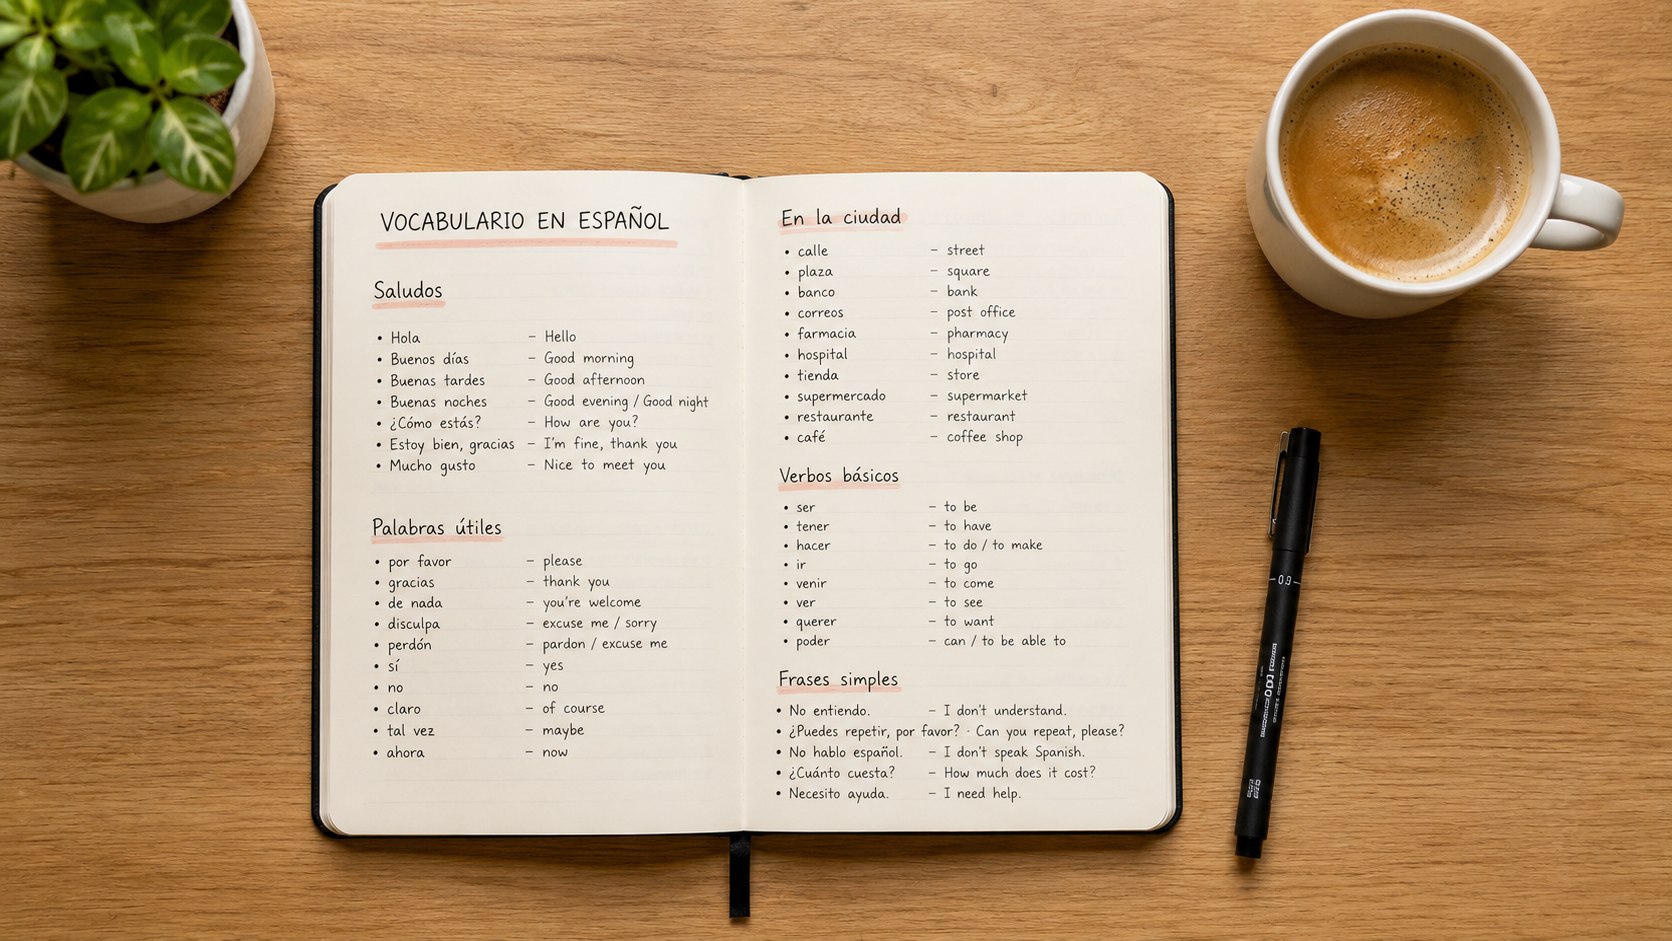 VOCABULARIO EN ESPAÑOL
Saludos
• Hola – Hello
• Buenos días – Good morning
• Buenas tardes – Good afternoon
• Buenas noches – Good evening / Good night
• ¿Cómo estás? – How are you?
• Estoy bien, gracias – I'm fine, thank you
• Mucho gusto – Nice to meet you
Palabras útiles
• por favor – please
• gracias – thank you
• de nada – you're welcome
• disculpa – excuse me / sorry
• perdón – pardon / excuse me
• sí – yes
• no – no
• claro – of course
• tal vez – maybe
• ahora – now
En la ciudad
• calle – street
• plaza – square
• banco – bank
• correos – post office
• farmacia – pharmacy
• hospital – hospital
• tienda – store
• supermercado – supermarket
• restaurante – restaurant
• café – coffee shop
Verbos básicos
• ser – to be
• tener – to have
• hacer – to do / to make
• ir – to go
• venir – to come
• ver – to see
• querer – to want
• poder – can / to be able to
Frases simples
• No entiendo. – I don't understand.
• ¿Puedes repetir, por favor? - Can you repeat, please?
• No hablo español. – I don't speak Spanish.
• ¿Cuánto cuesta? – How much does it cost?
• Necesito ayuda. – I need help.